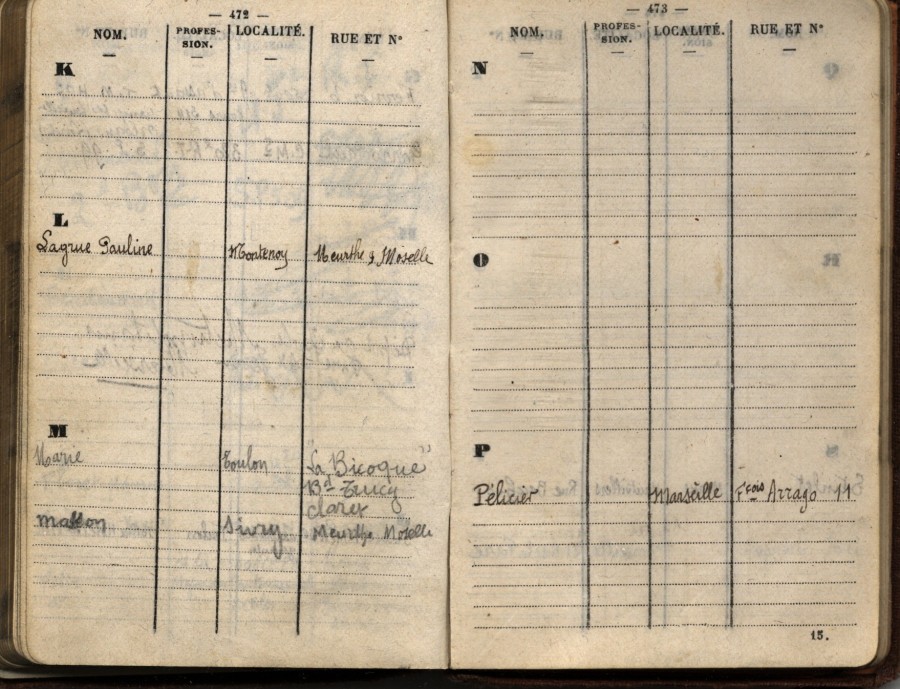 — 472 —
NOM. PROFES-SION. LOCALITÉ. RUE ET N°
K
L
Lagrue Pauline Montenoy Meurthe & Moselle
M
Marie Toulon "La Bicoque"
Bd
claret
Mallon Sivry Meurthe Moselle
— 473 —
NOM. PROFES-SION. LOCALITÉ. RUE ET N°
N
O
P
Pélicier Marseille Fçois Arrago 11
15.